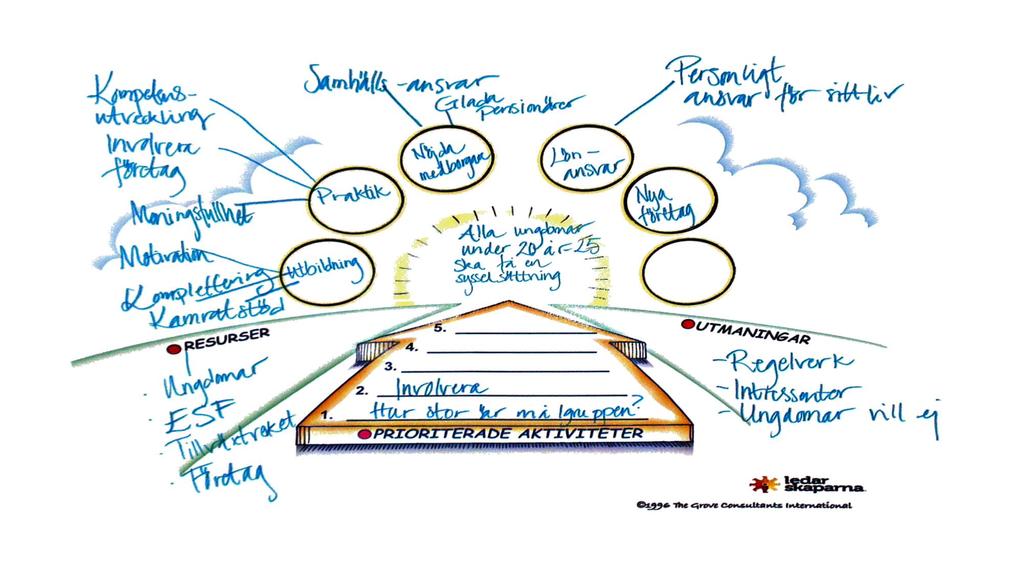 Kompetens-
utveckling
Involvera
företag
Meningsfullhet
Motivation
Komplettering
Kamratstöd
Samhälls-ansvar
Glada
pensionärer
Personligt
ansvar för sitt liv
Praktik
Utbildning
Nöjda
medborgare
Lön-
ansvar
Nya
företag
Alla ungdomar
under 20 år-25
ska få en
sysselsättning
RESURSER
Ungdomar
ESF
Tillväxtverket
Företag
5.
4.
3.
2. Involvera
1. Hur stor är målgruppen?
PRIORITERADE AKTIVITETER
UTMANINGAR
-Regelverk
-Intressenter
-Ungdomar vill ej
ledar
skaparna
©1996 The Grove Consultants International